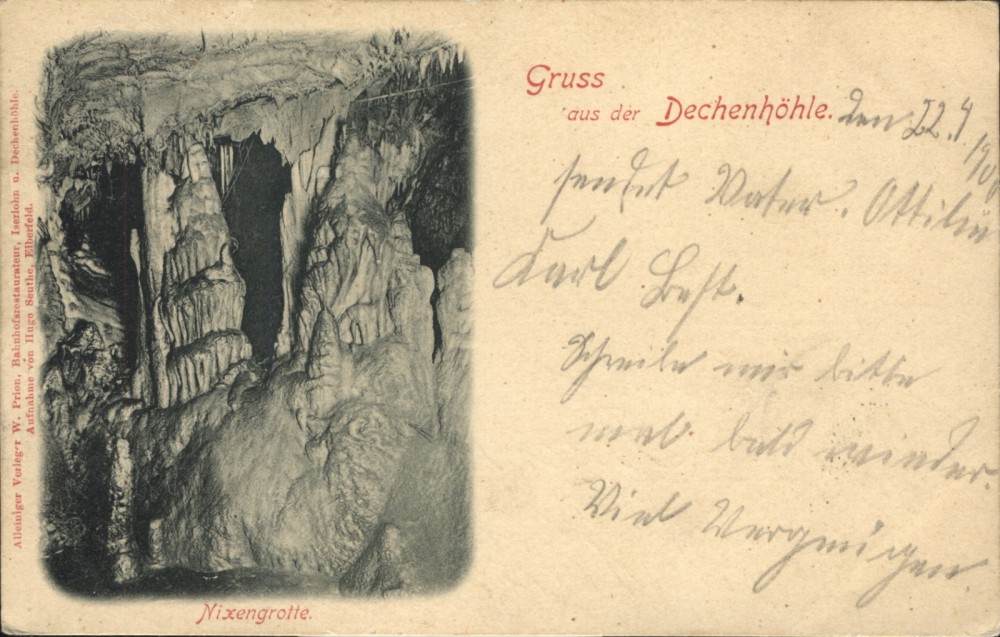 Alleiniger Verleger W. Prion, Bahnhofsrestaurateur, Iserlohn u. Dechenhöhle.
Aufnahme von Hugo Seuthe, Elberfeld.
Gruss
aus der Dechenhöhle.
den 22.4
sendet Vater. Ottilie
Karl Best.
Schreibe mir bitte
mal bald wieder.
Viel Vergnügen.
Nixengrotte.